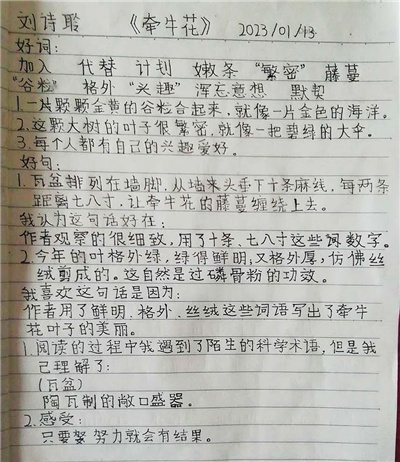 刘诗聪 《牵牛花》 2023/01/13
好词:
加入 代替 计划 嫩条 “繁密” 藤蔓
“谷粒” 格外 “兴趣” 浑忘意想 默契
1.一片颗颗金黄的谷粒合起来,就像一片金色的海洋。
2.这颗大树的叶子很繁密,就像一把碧绿的大伞。
3.每个人都有自己的兴趣爱好。
好句:
1.瓦盆排列在墙脚,从墙来头垂下十条麻线,每两条
距离七八寸,让牵牛花的藤蔓缠绕上去。
我认为这句话好在:
作者观察的很细致,用了十条、七八寸这些词数字。
2.今年的叶格外绿,绿得鲜明,又格外厚,仿佛丝
绒剪成的。这自然是过磷骨粉的功效。
我喜欢这句话是因为:
作者用了鲜明、格外、丝绒这些词语写出了牵牛
花叶子的美丽。
1.阅读的过程中我遇到了陌生的科学术语,但是我
己理解了:
(瓦盆)
陶瓦制的敞口盛器。
2.感受:
只要努力就会有结果。